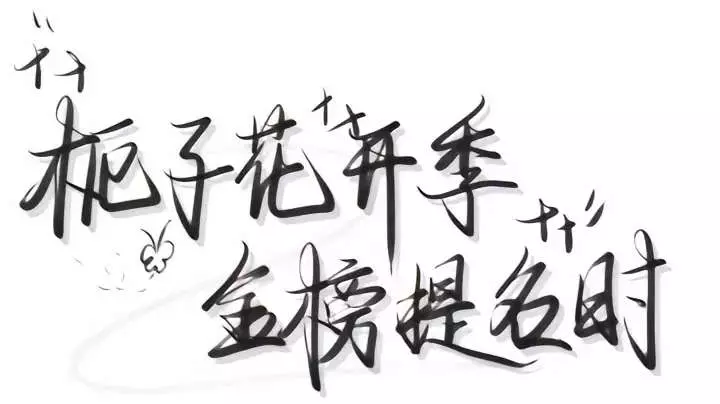 栀子花开季
金榜提名时